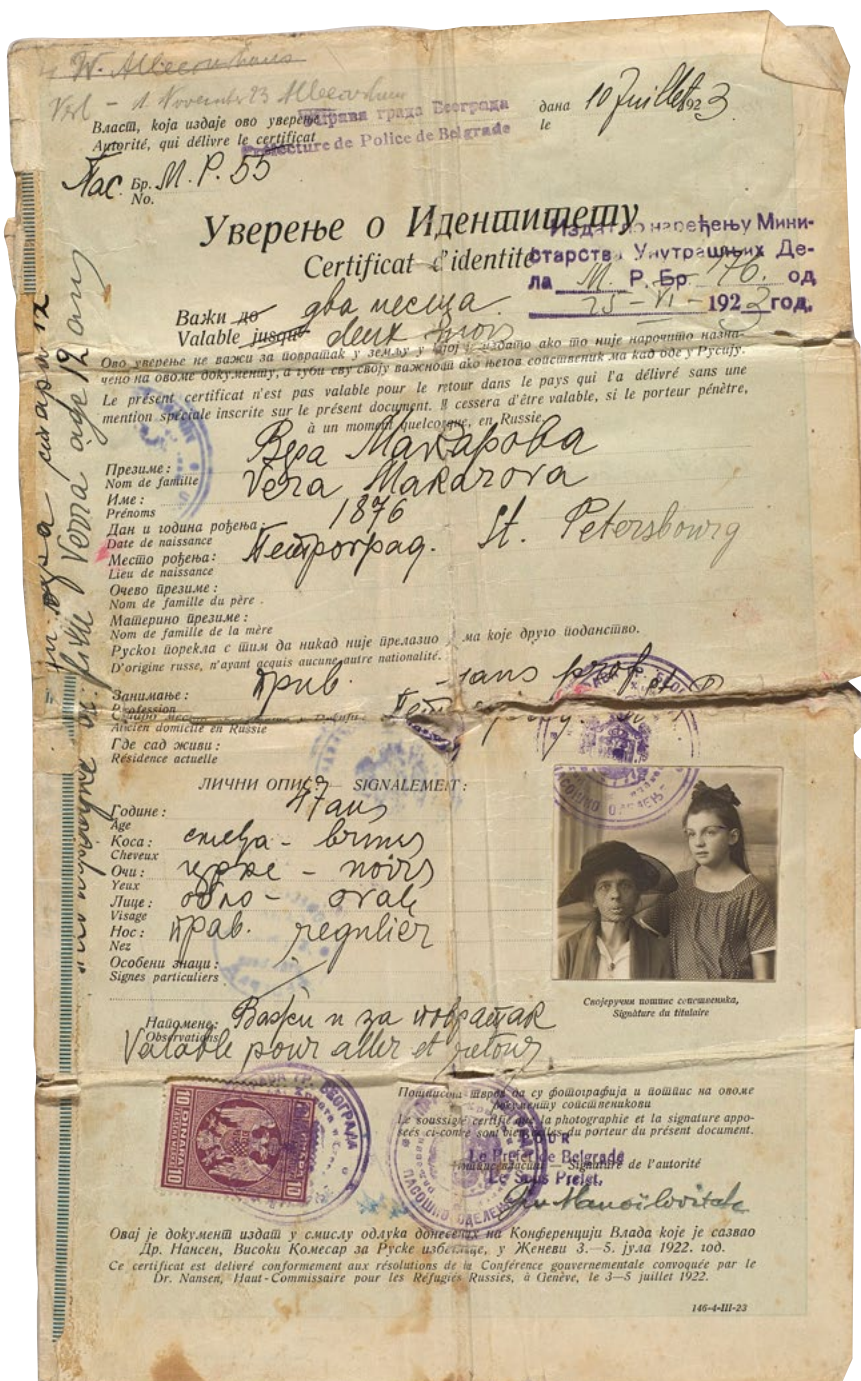 Vort - 1. November 23
Власт, која издаје ово уверење
Управа града Београда
Autorité, qui délivre le certificat
Préfecture de Police de Belgrade
дана
le
10 Juillet 1923.
Пас. Бр. М. Р. 55
No.
Уверење о Идентитету
Certificat d'identité
Издато по наређењу Мини-
старства Унутрашњих Де-
ла М. Р. Бр. 176. од
25-VI-1923 год.
Важи до два месеца.
Valable jusque deux mois
Ово уверење не важи за повратак у земљу у којој је издато ако то није нарочито назна-
чено на овоме документу, а губи сву своју важност ако његов сопственик ма кад оде у Русију.
Le présent certificat n'est pas valable pour le retour dans le pays qui l'a délivré sans une
mention spéciale inscrite sur le présent document. Il cessera d'être valable, si le porteur pénètre,
à un moment quelconque, en Russie.
Вера Макарова
Презиме:
Nom de famille
Vera Makarova
Име:
Prénoms
1876
Дан и година рођења:
Date de naissance
Место рођења:
Lieu de naissance
Петроград. St. Petersbourg
Очево презиме:
Nom de famille du père.
Материно презиме:
Nom de famille de la mère
Руског порекла с тим да никад није прелазио у ма које друго поданство.
D'origine russe, n'ayant acquis aucune autre nationalité.
Занимање:
Profession
прив. - sans prof.
Ancien domicile en Russie
Где сад живи:
Résidence actuelle
ЛИЧНИ ОПИС - SIGNALEMENT:
Године:
Age
47 ans
Коса:
Cheveux
смеђа - bruns
Очи:
Yeux
црне - noirs
Лице:
Visage
обло - ovale
Нос:
Nez
прав. regulier
Особени знаци:
Signes particuliers
Својеручни потпис сопственика,
Signature du titulaire
Напомене:
Observations
Важи и за повратак
Valable pour aller et retour
Потписом тврди да су фотографија и потпис на овоме
документу сопственикови
Le soussigné certifie que la photographie et la signature appo-
sées ci-contre sont bien celles du porteur du présent document.
POUR
Le Préfet de Belgrade
Signature de l'autorité
Le Sous Préfet,
Овај је документ издат у смислу одлука донесених на Конференцији Влада које је сазвао
Др. Нансен, Високи Комесар за Руске избеглице, у Женеви 3.—5. јула 1922. год.
Ce certificat est delivré conformement aux résolutions de la Conférence gouvernementale convoquée par le
Dr. Nansen, Haut-Commissaire pour les Réfugiés Russies, à Genève, le 3—5 juillet 1922.
146-4-III-23
fille Verra age 12 ans